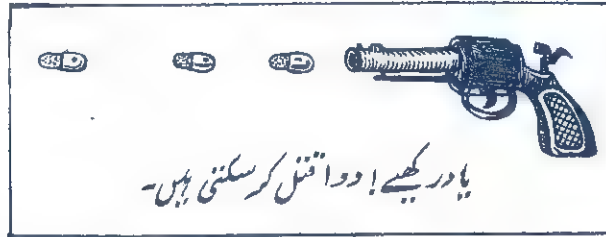 یاد رکھیے! دوا قتل کر سکتی ہیں۔